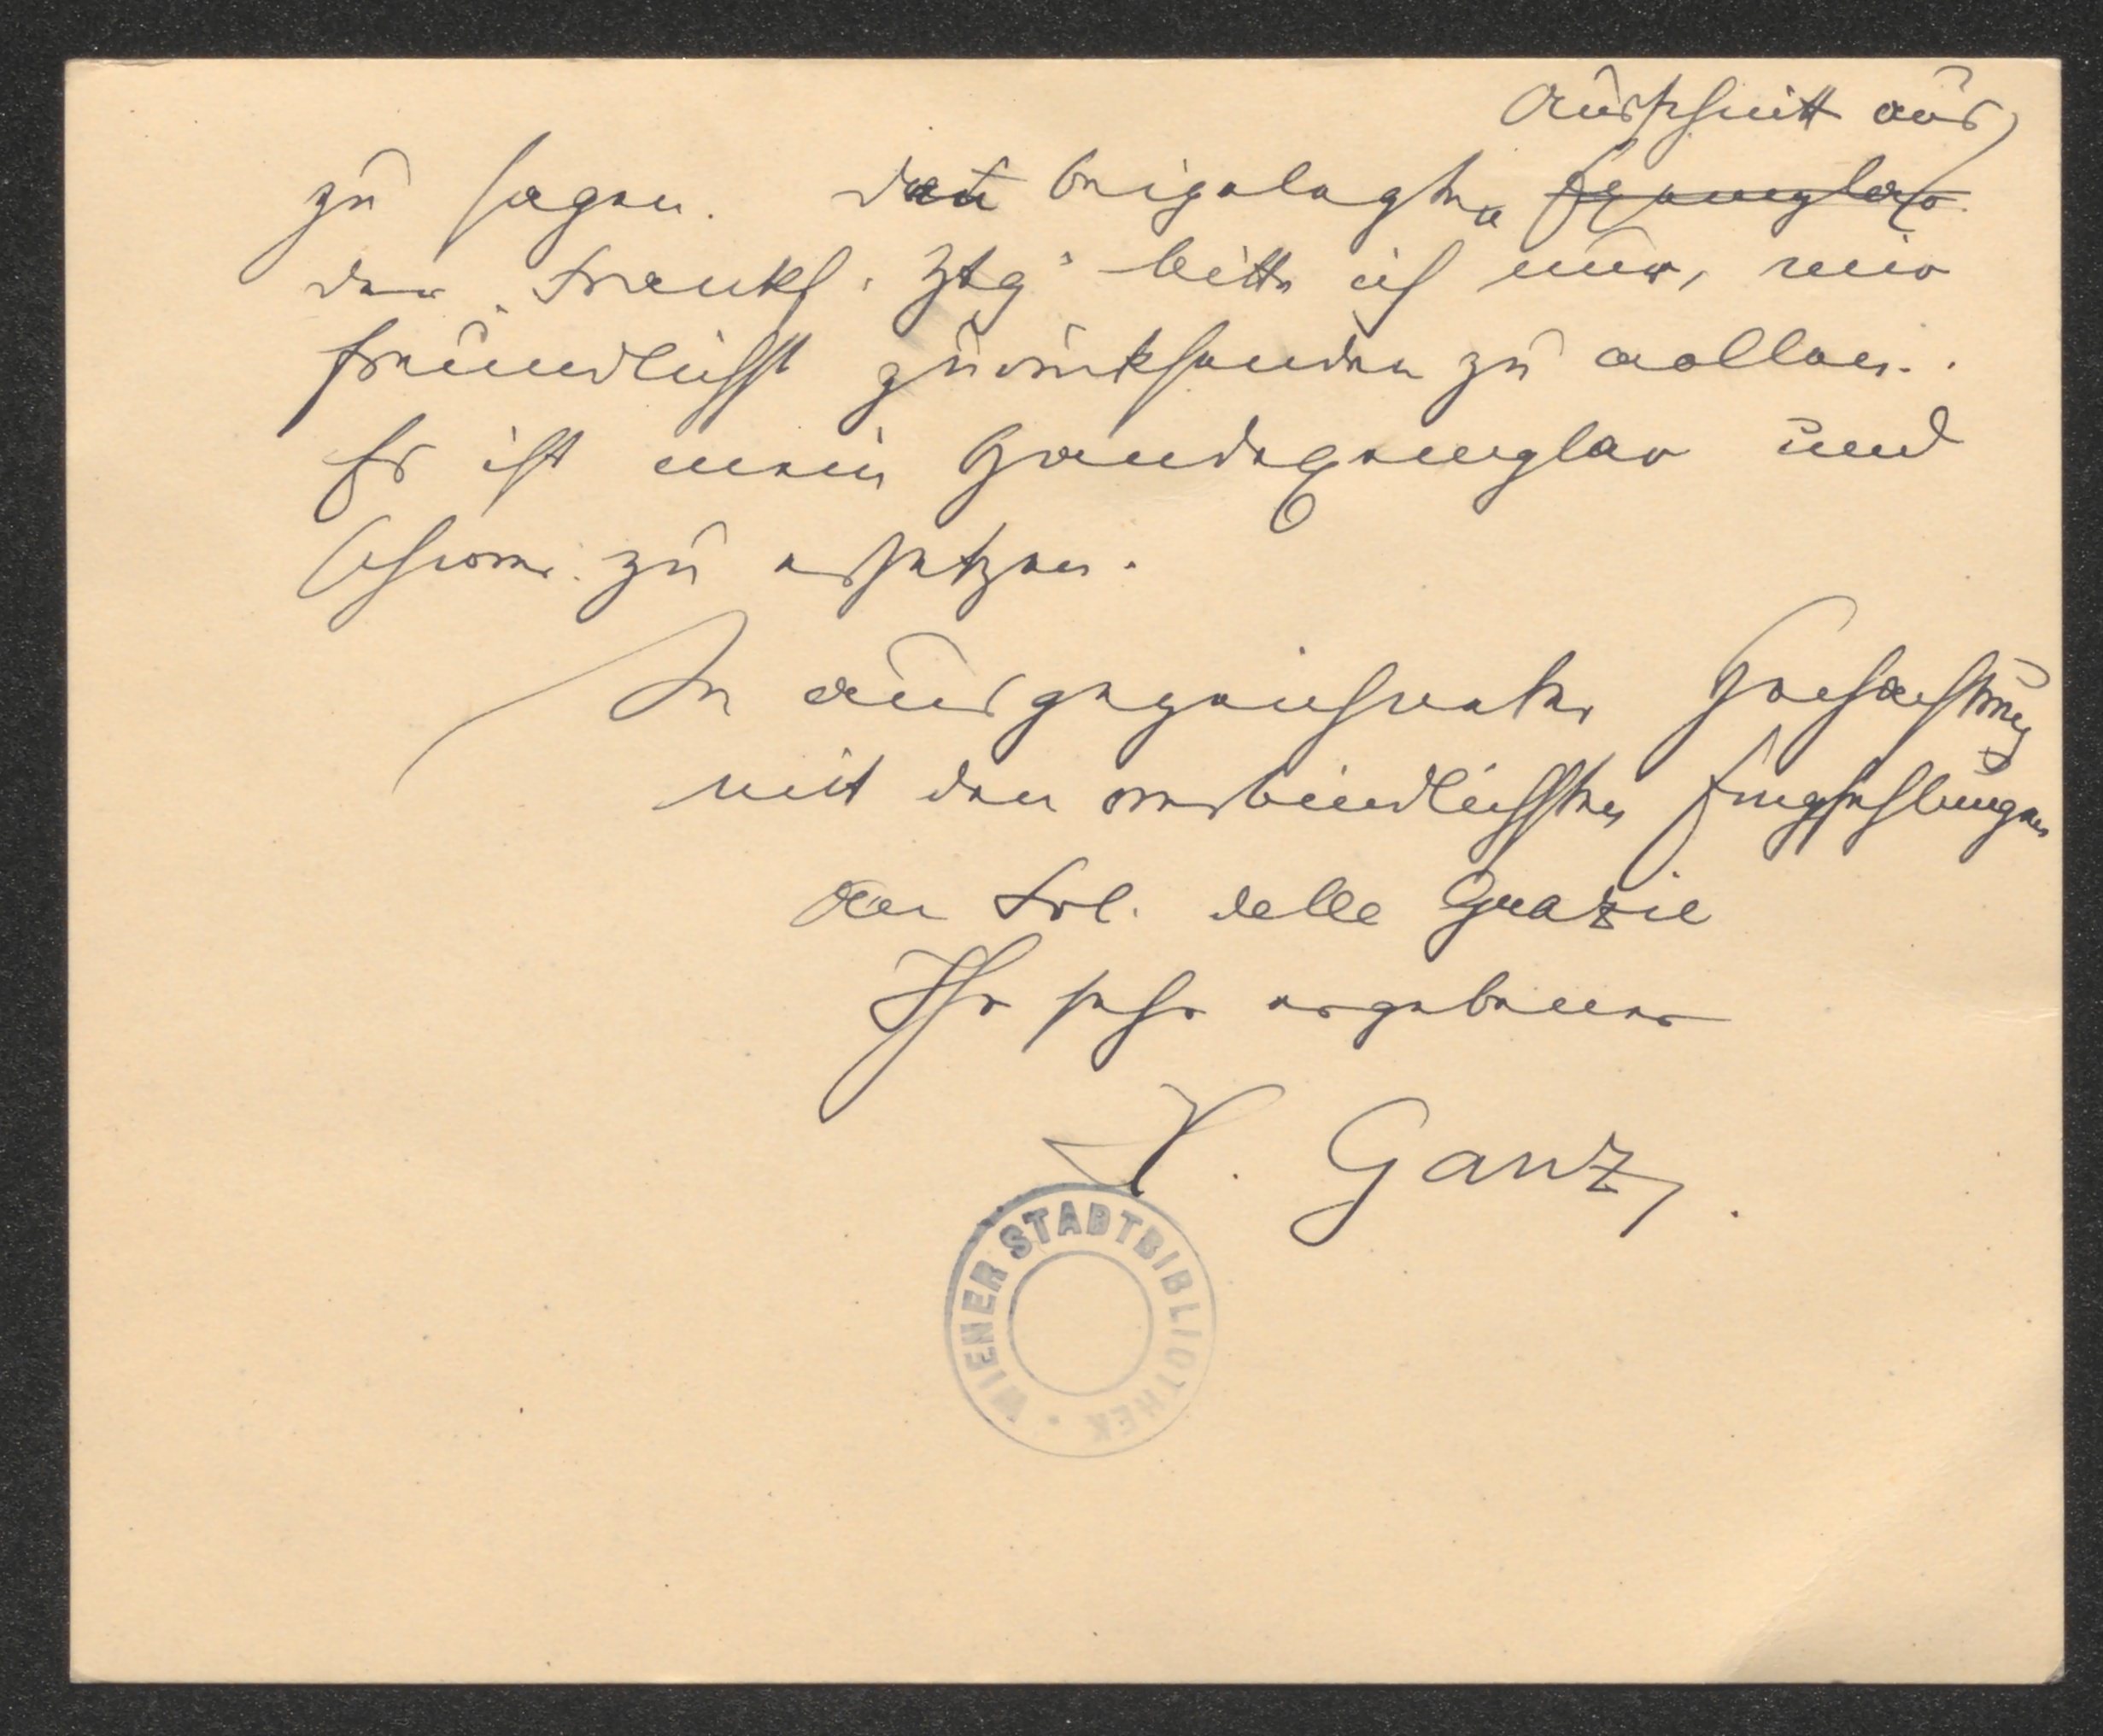 Ausschnitt aus
zu sagen. Den beigelegten Exemplar
der "Frankf. Ztg" bitte ich nur, mir
freundlichst zurücksenden zu wollen.
Es ist mein Handexemplar und
schwer zu ersetzen.
In ausgezeichneter Hochachtung
mit den verbindlichsten Empfehlungen
an Frl. delle Grazie
Ihr sehr ergebener
H. Ganz.
WIENER STADTBIBLIOTHEK